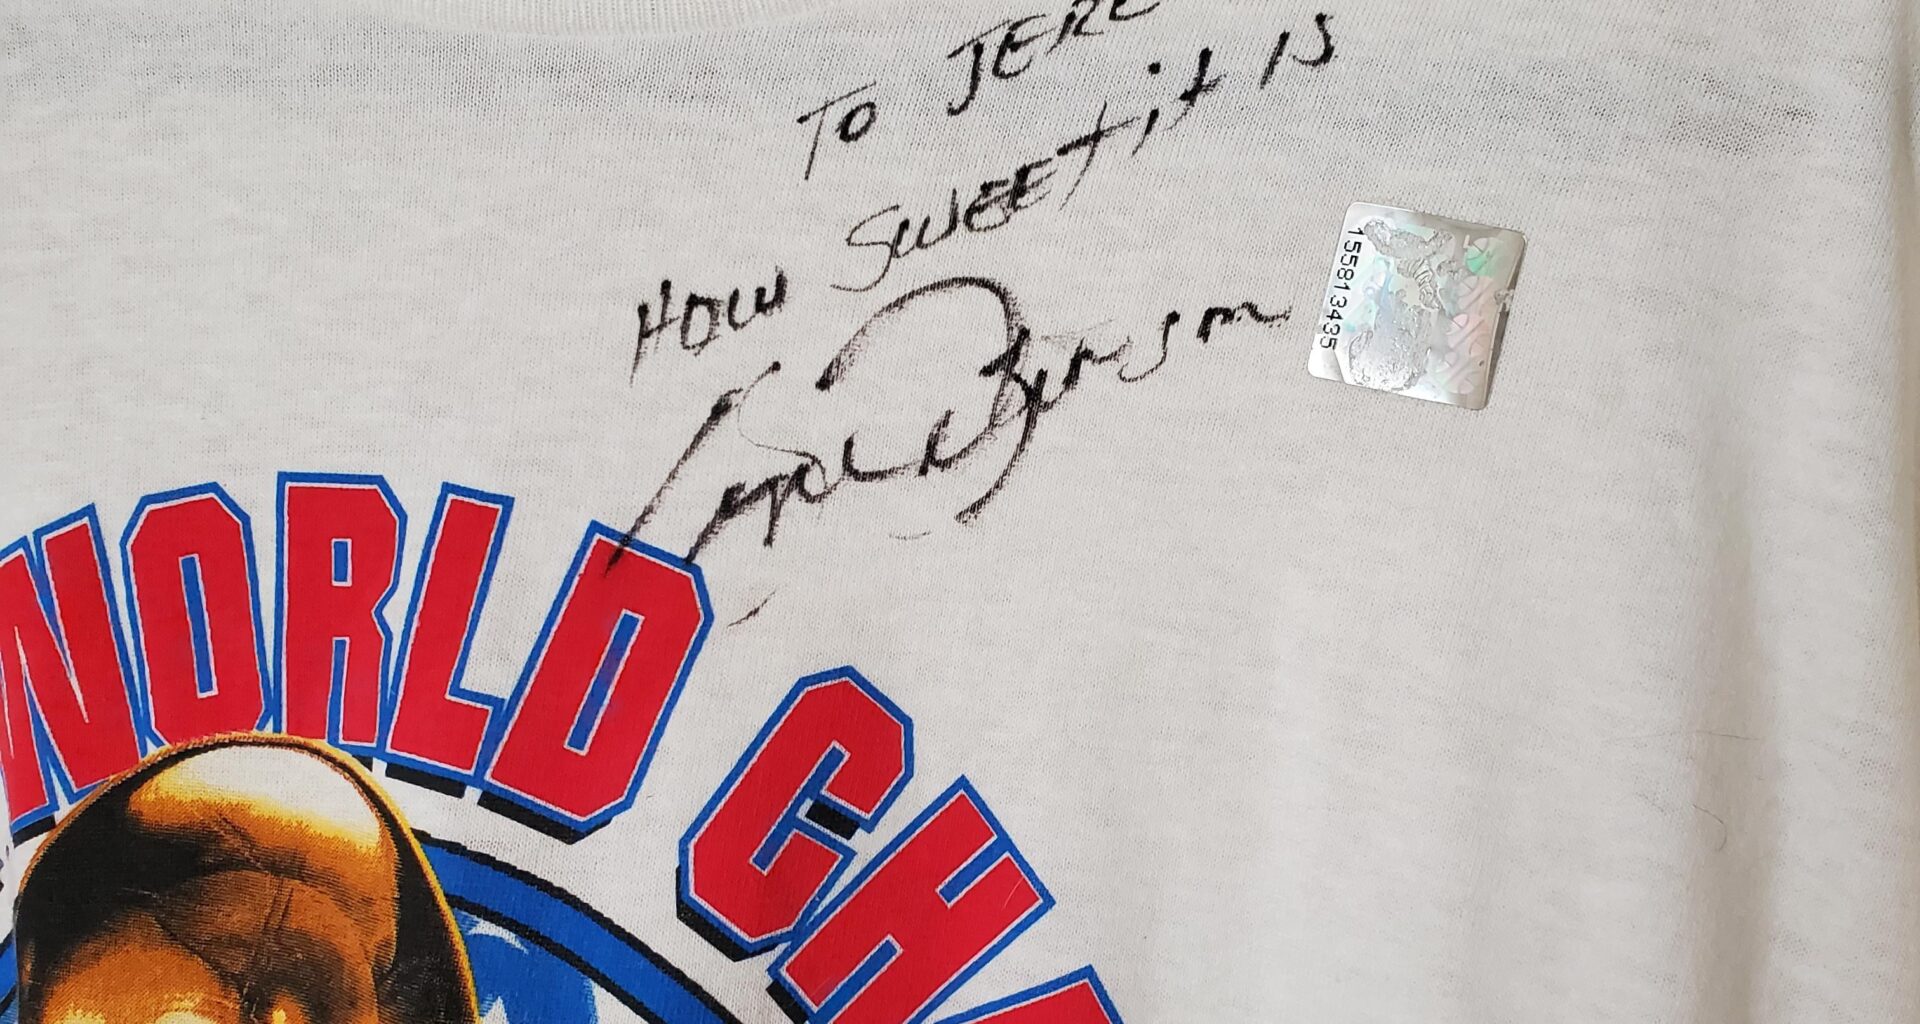 TO JERE
HOW SWEET it IS
155813435
WORLD CHA